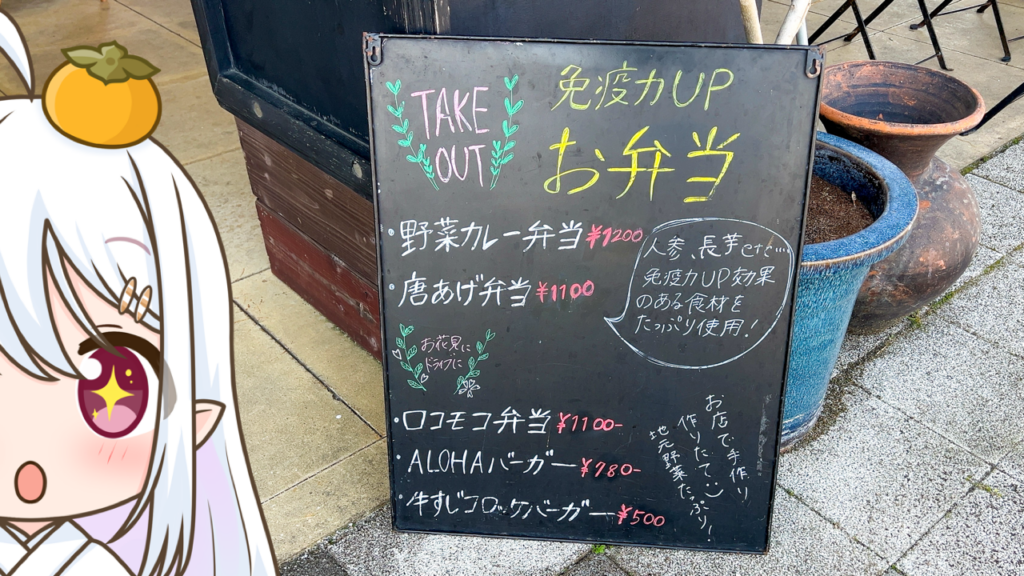 TAKE
OUT
免疫力UP
お弁当
・野菜カレー弁当 ¥1200
・唐あげ弁当 ¥1100
人参、長芋など…
免疫力UP効果
のある食材を
たっぷり使用!
お花見に
ドライブに
・ロコモコ弁当 ¥1100-
・ALOHAバーガー ¥780-
・牛すじコロッケバーガー ¥500
お店で手作り
作りたて
地元野菜たっぷり!